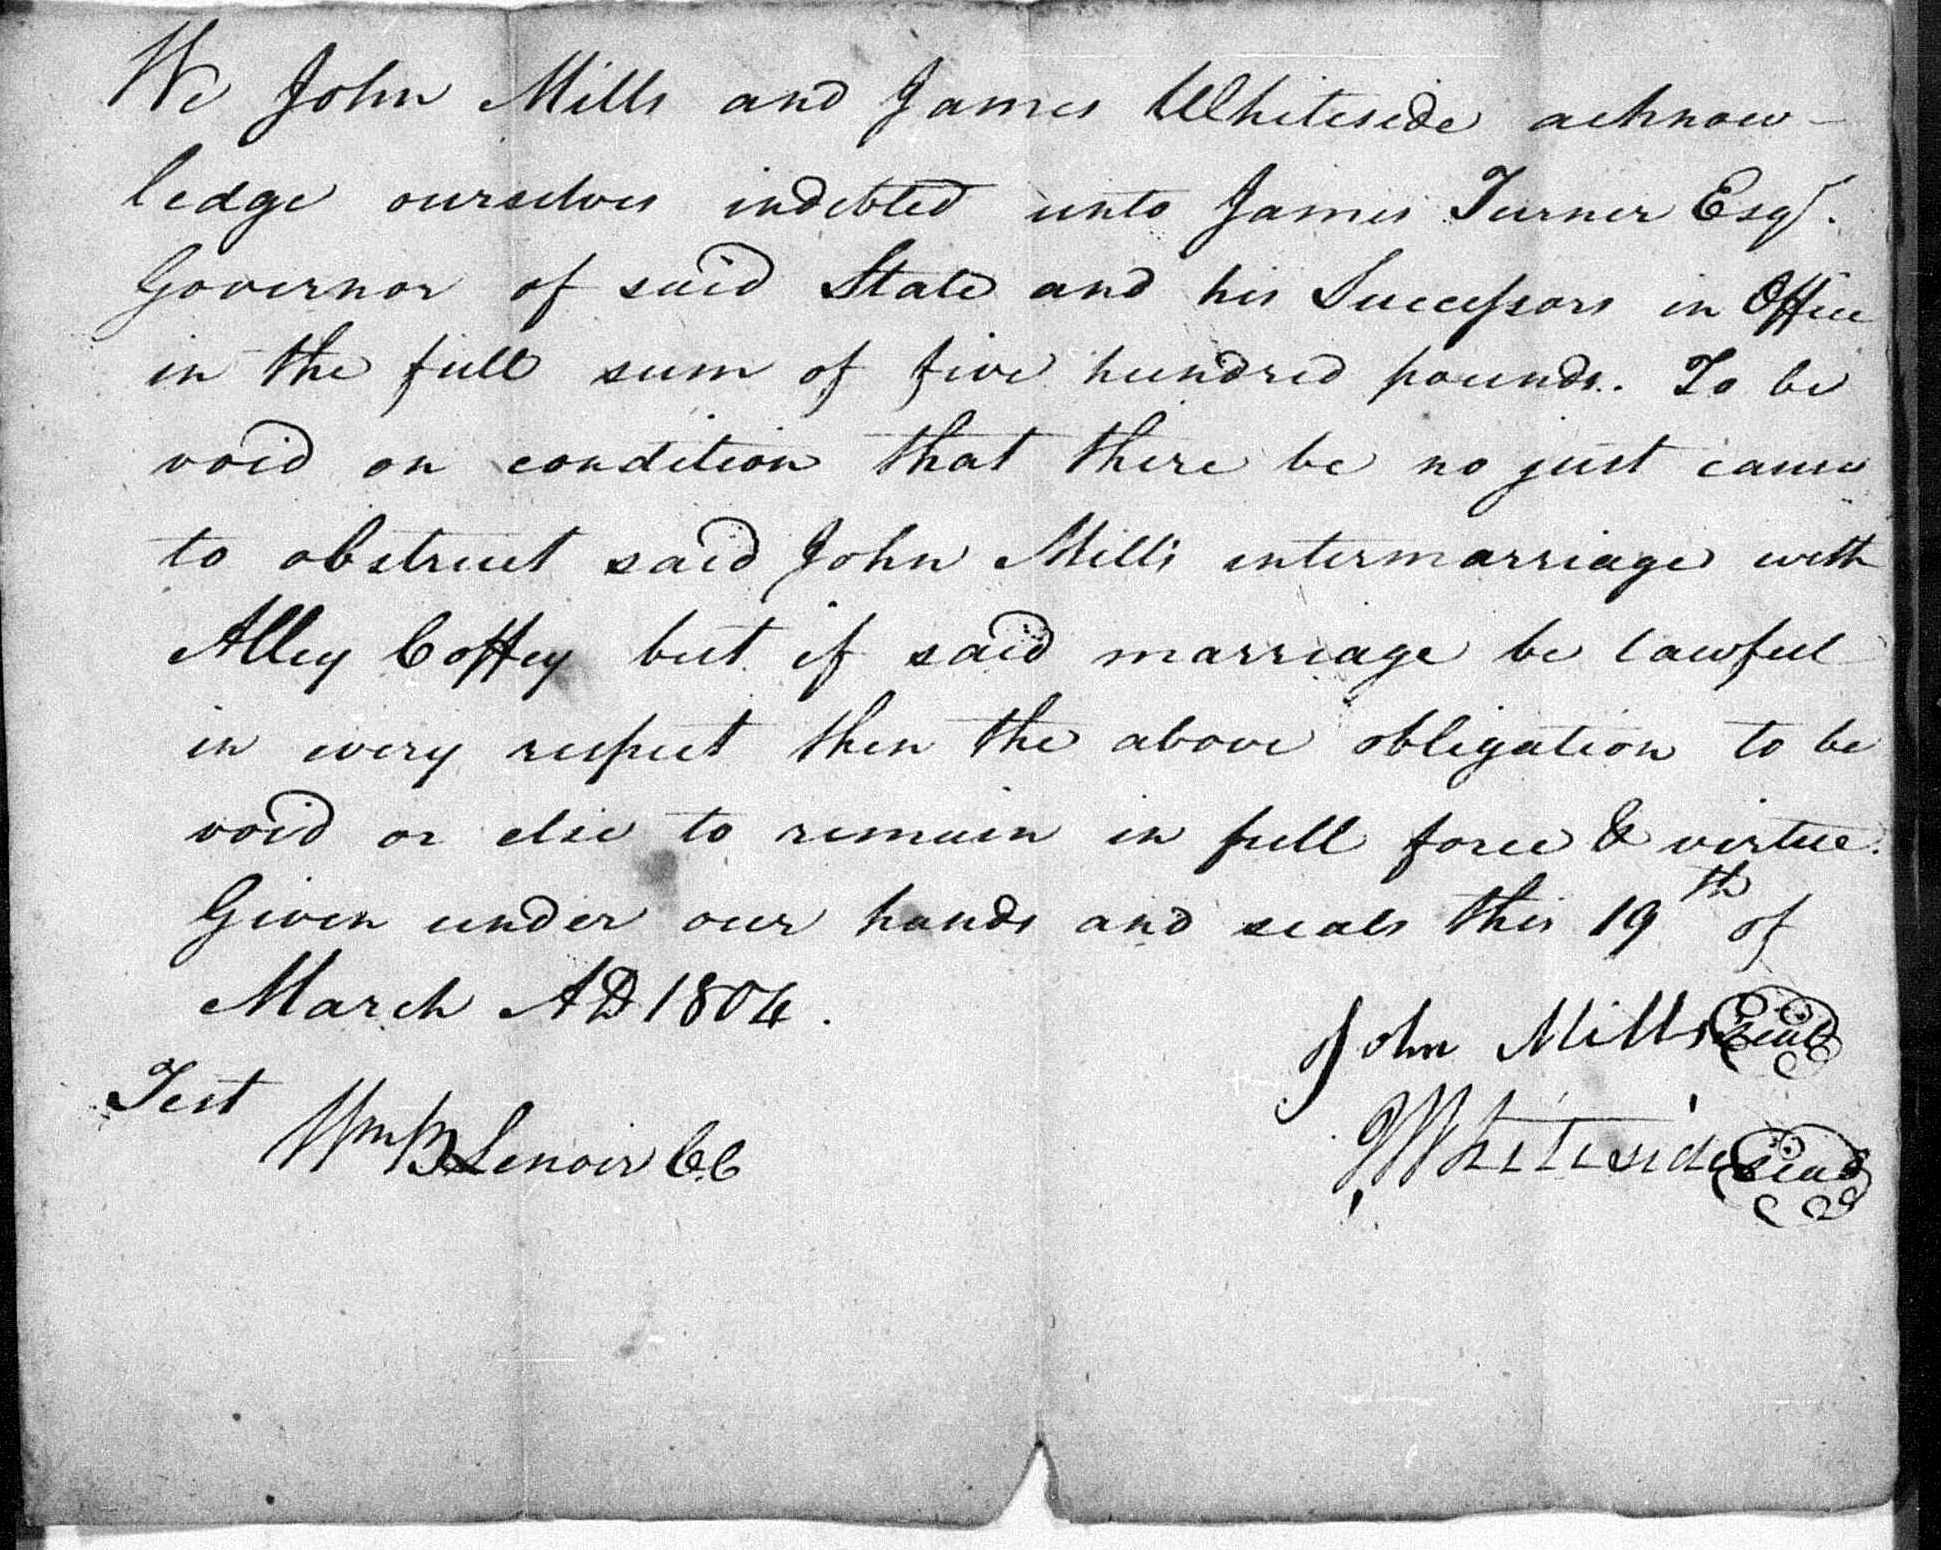 We John Mills and James Whiteside acknow-
ledge ourselves indebted unto James Turner Esqr.
Governor of said State and his Successors in Office
in the full sum of five hundred pounds. To be
void on condition that there be no just cause
to obstruct said John Mills intermarriage with
Alley Coffey but if said marriage be lawful
in every respect then the above obligation to be
void or else to remain in full force & virtue.
Given under our hands and seals this 19th of
March AD 1804.
John Mills seal
Test
Wm B Lenoir CC
J Whiteside seal